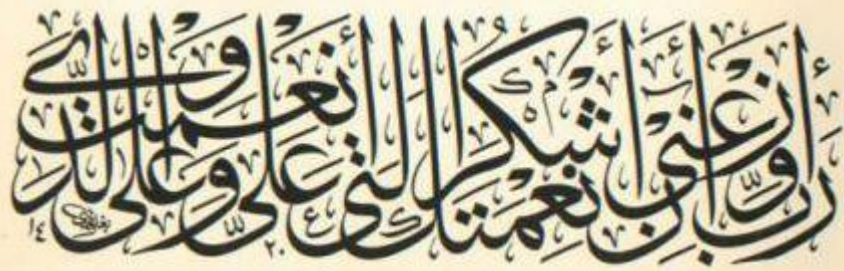 رَبِّ أَوْزِعْنِي أَنْ أَشْكُرَ نِعْمَتَكَ الَّتِي أَنْعَمْتَ عَلَيَّ وَعَلَى وَالِدَيَّ
٢٠ ١٤